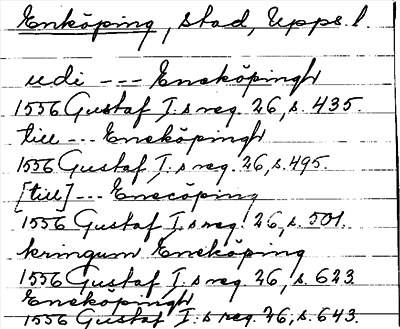 Enköping, stad, Upps. l.
udi --- Eneköpingh
1556 Gustaf I:s reg. 26, s. 435.
till --- Eneköpingh
1556 Gustaf I:s reg. 26, s. 495.
[till] --- Enecöping
1556 Gustaf I:s reg. 26, s. 501.
kringum Eneköping
1556 Gustaf I:s reg. 26, s. 623.
Eneköpingh
1556 Gustaf I:s reg. 26, s. 643.